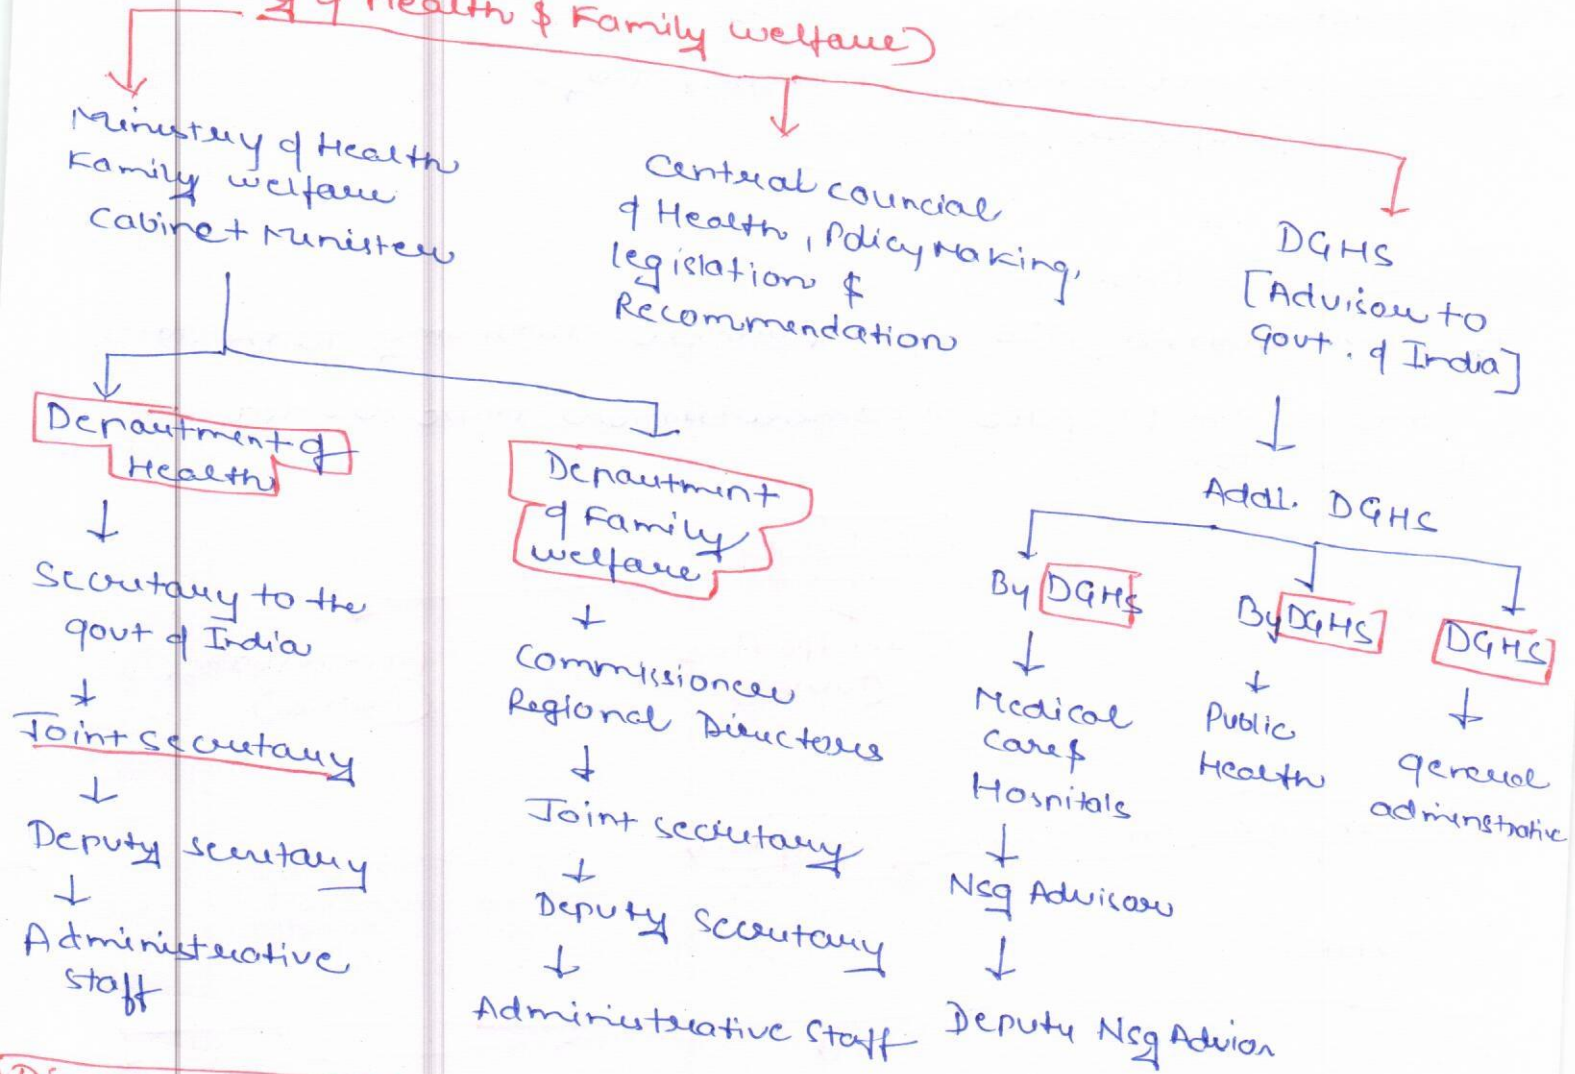 of Health & Family welfare)
Ministry of Health
Family welfare
Cabinet Minister
Central councial
of Health, Policy Making,
legislation &
Recommendation
DGHS
[Advisor to
Govt. of India]
Department of
Health
Secretary to the
govt of India
Joint secretary
Deputy secretary
Administrative
staff
Department
of Family
welfare
Commissioner
Regional Directors
Joint secretary
Deputy Secretary
Administrative Staff
Addl. DGHS
By DGHS
Medical
Care &
Hospitals
Nsg Advisor
Deputy Nsg Advior
By DGHS
Public
Health
DGHS
general
adminstrative